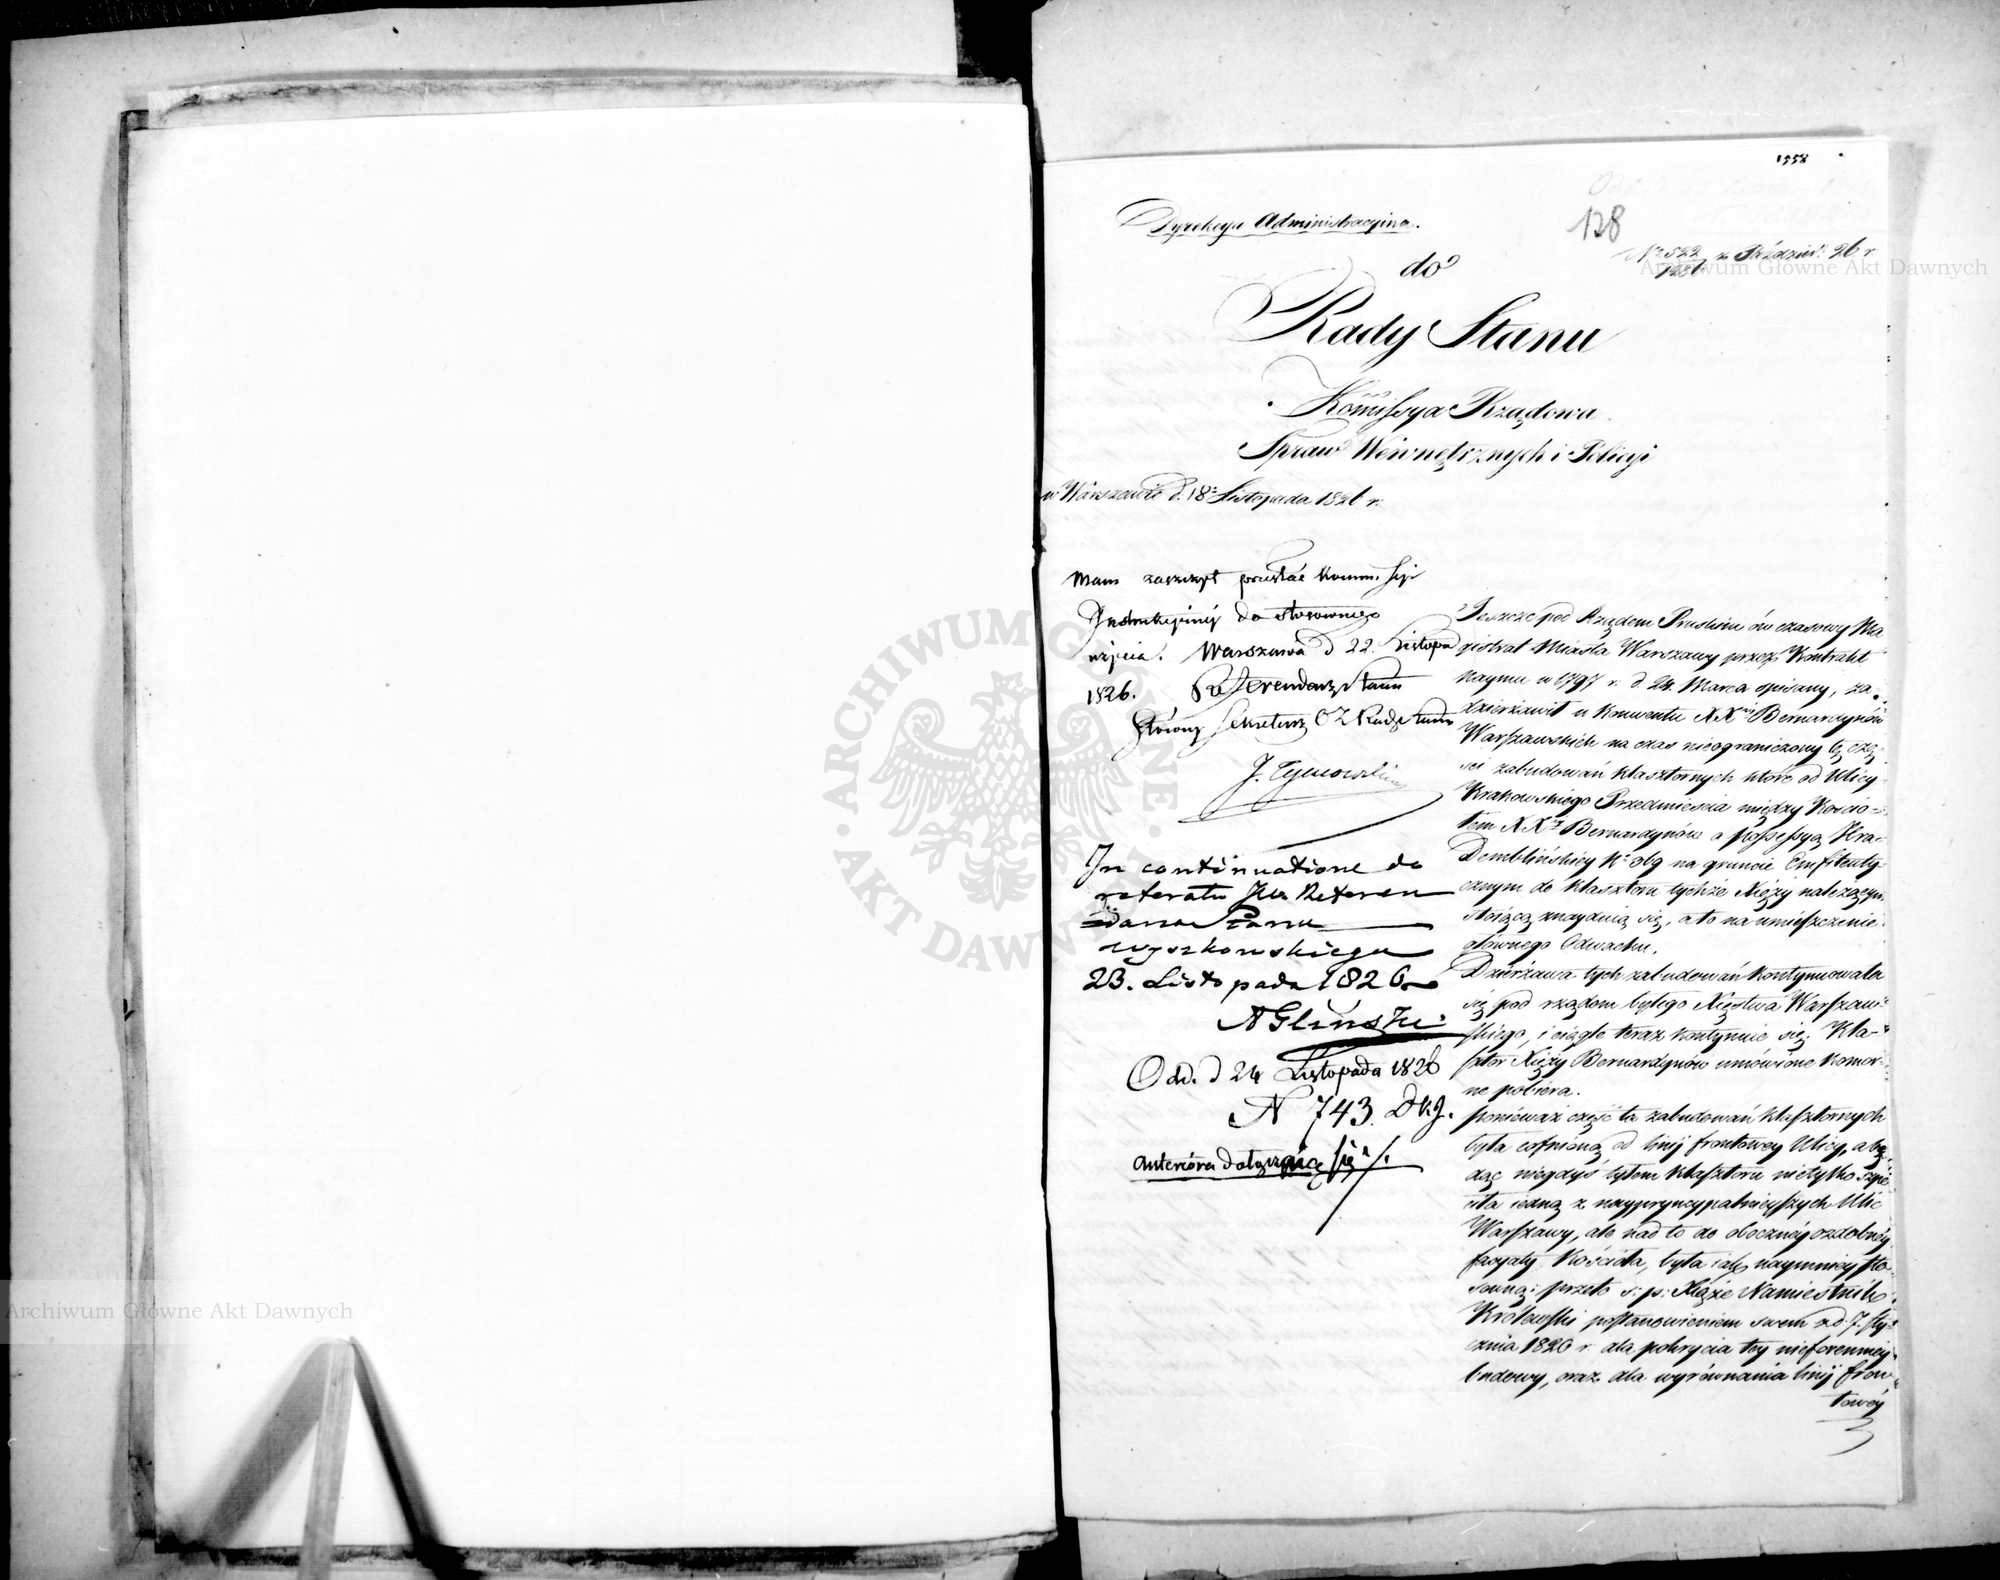 1558
Dyrekcya Administracyina.
128
N° 522 z Paździer: 26 r
do
Rady Stanu
Kommissya Rządowa
Spraw Wewnętrznych i Policyi
w Warszawie d. 18 Listopada 1826 r.
Mam zaszczyt przesłać Kommissyi
Instrukcyiney do stosownego
użycia. Warszawa d 22. Listopa
1826. Referendarz Stanu
Sekretarz Rady Stanu
J. Tymowski
In continuatione do
referatu JW Referen
darza Stanu
Wyszkowskiego
23. Listopada 1826
AGliński
Odd. d 24 Listopada 1826
N 743. DKJ.
anteriora dołączaią się
Jeszcze pod Rządem Pruskim ów czasowy Ma
gistrat Miasta Warszawy przez Kontrakt
Naymu w 1797 r. d. 24. Marca spisany, za
dzierżawił u Konwentu XX Bernardynów
Warszawskich na czas nieograniczony tę czę
ści zabudowań klasztornych które od Ulicy
Krakowskiego Przedmieścia między Kościo
łem XX Bernardynów a possessyą Hra
Demblińskiey N° 369 na gruncie Emfiteuty
cznym do Klasztoru tychże Xięży należącym
stoiącą znayduią się, a to na umieszczenie
głównego Odwachu.
Dzierżawa tych zabudowań kontynuowała
się pod rządem byłego Xięstwa Warszaw
skiego, i ciągle teraz kontynuie się. Kla
sztor Xięży Bernardynów umówione Komor
ne pobiera.
ponieważ część ta zabudowań klasztornych
była cofnioną od linij frontowey Ulicy, a bę
dąc niegdyś tyłem Klasztoru nietylko szpe
ciła iedną z naypryncypalnieyszych Ulic
Warszawy, ale nad to do oboczney ozdobney
facyaty Kościoła, była iak naymniey sto
sowną: przeto ś: p: Xiąże Namiestnik
Królewski postanowieniem swem z d. 7. Sty
cznia 1820 r. dla pokrycia tey nieforemney
budowy, oraz dla wyrównania linij fron
towey
ARCHIWUM GŁÓWNE AKT DAWNYCH
Archiwum Główne Akt Dawnych
Archiwum Główne Akt Dawnych